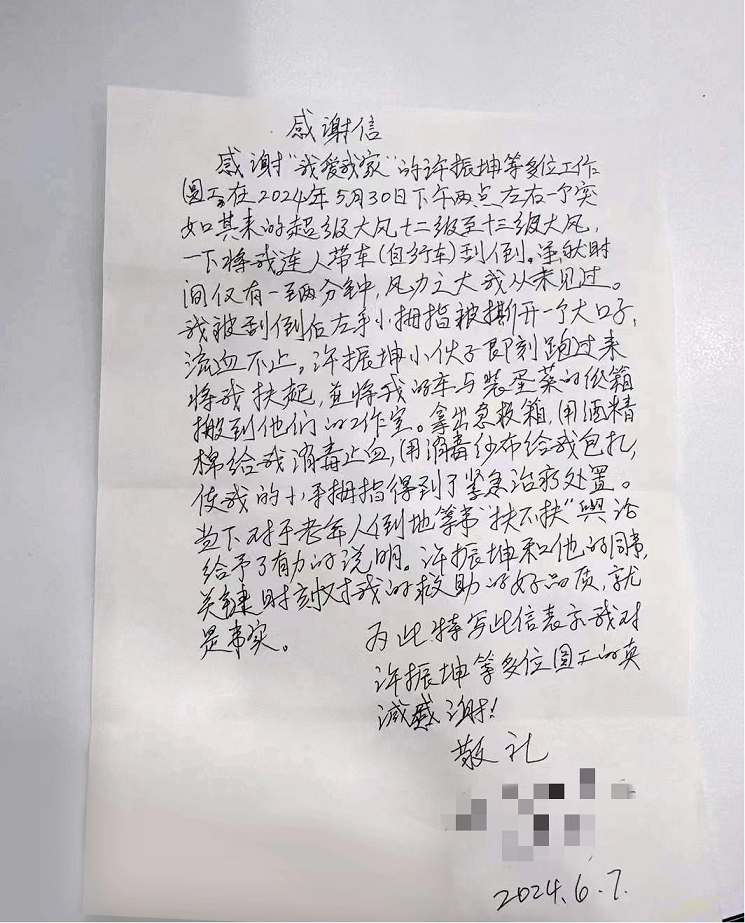 感谢信
感谢“我爱我家”的许振坤等多位工作
员工在2024年5月30日下午两点左右一个突
如其来的超级大风十二级至十三级大风，
一下将我连人带车（自行车）刮倒。虽然时
间仅有一至两分钟，风力之大我从未见过。
我被刮倒后左手小拇指被撕开一个大口子，
流血不止。许振坤小伙子即刻跑过来
将我扶起，并将我的车与装蛋菜的纸箱
搬到他们的工作室。拿出急救箱，用酒精
棉给我消毒止血，用消毒纱布给我包扎，
使我的小手拇指得到了紧急治疗处置。
当下对于老年人倒地等事“扶不扶”舆论
给予了有力的说明。许振坤和他的同事，
关键时刻对我的救助的好品质，就
是事实。
为此特写此信表示我对
许振坤等多位员工的真
诚感谢！
敬礼
2024.6.7.